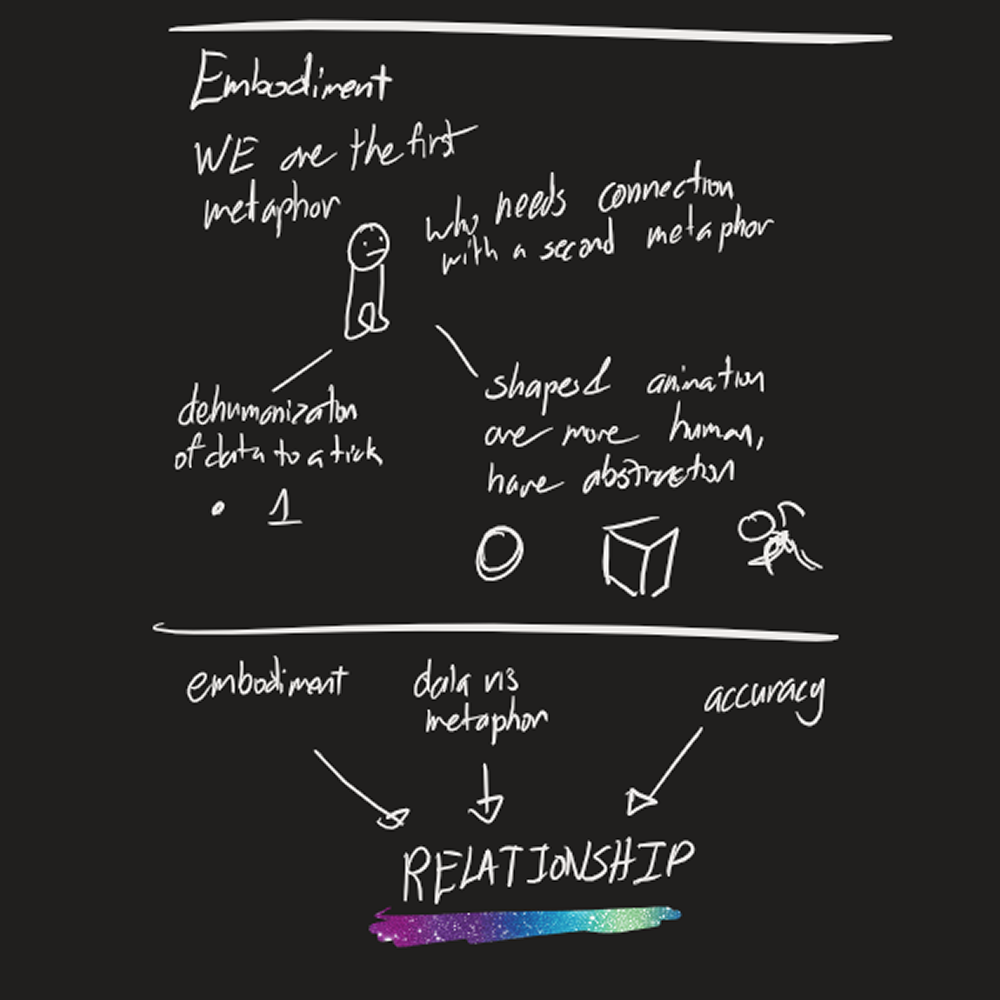 Embodiment
WE are the first
metaphor
who needs connection
with a second metaphor
dehumanization
of data to a tick
1
shapes & animation
are more human,
have abstraction
embodiment
data vis
metaphor
accuracy
RELATIONSHIP